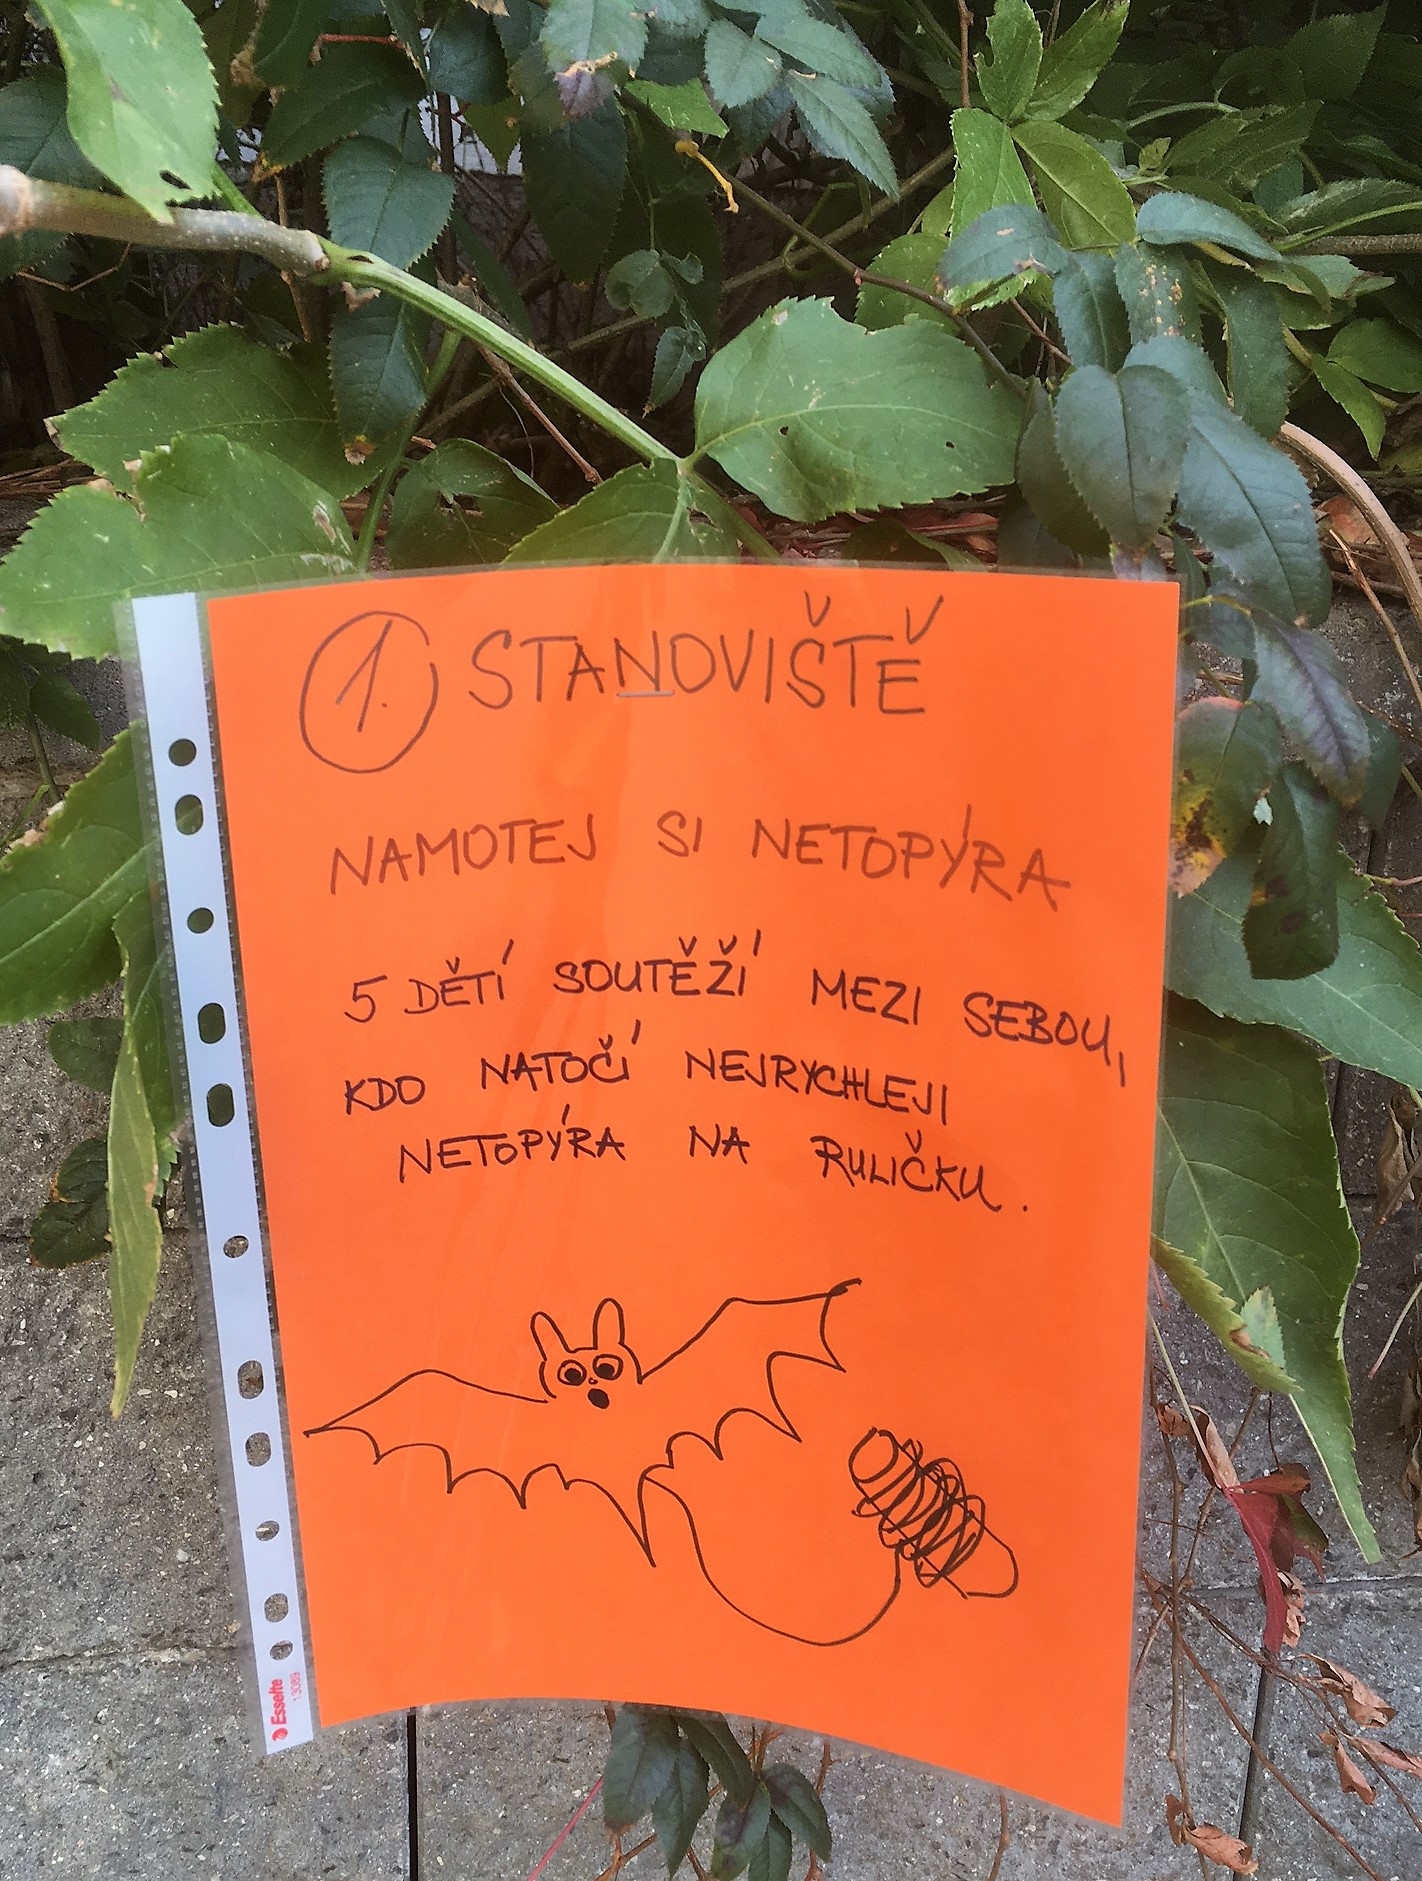 1. STANOVIŠTĚ
NAMOTEJ SI NETOPÝRA
5 DĚTÍ SOUTĚŽÍ MEZI SEBOU,
KDO NATOČÍ NEJRYCHLEJI
NETOPÝRA NA RULIČKU.
Esselte
13089